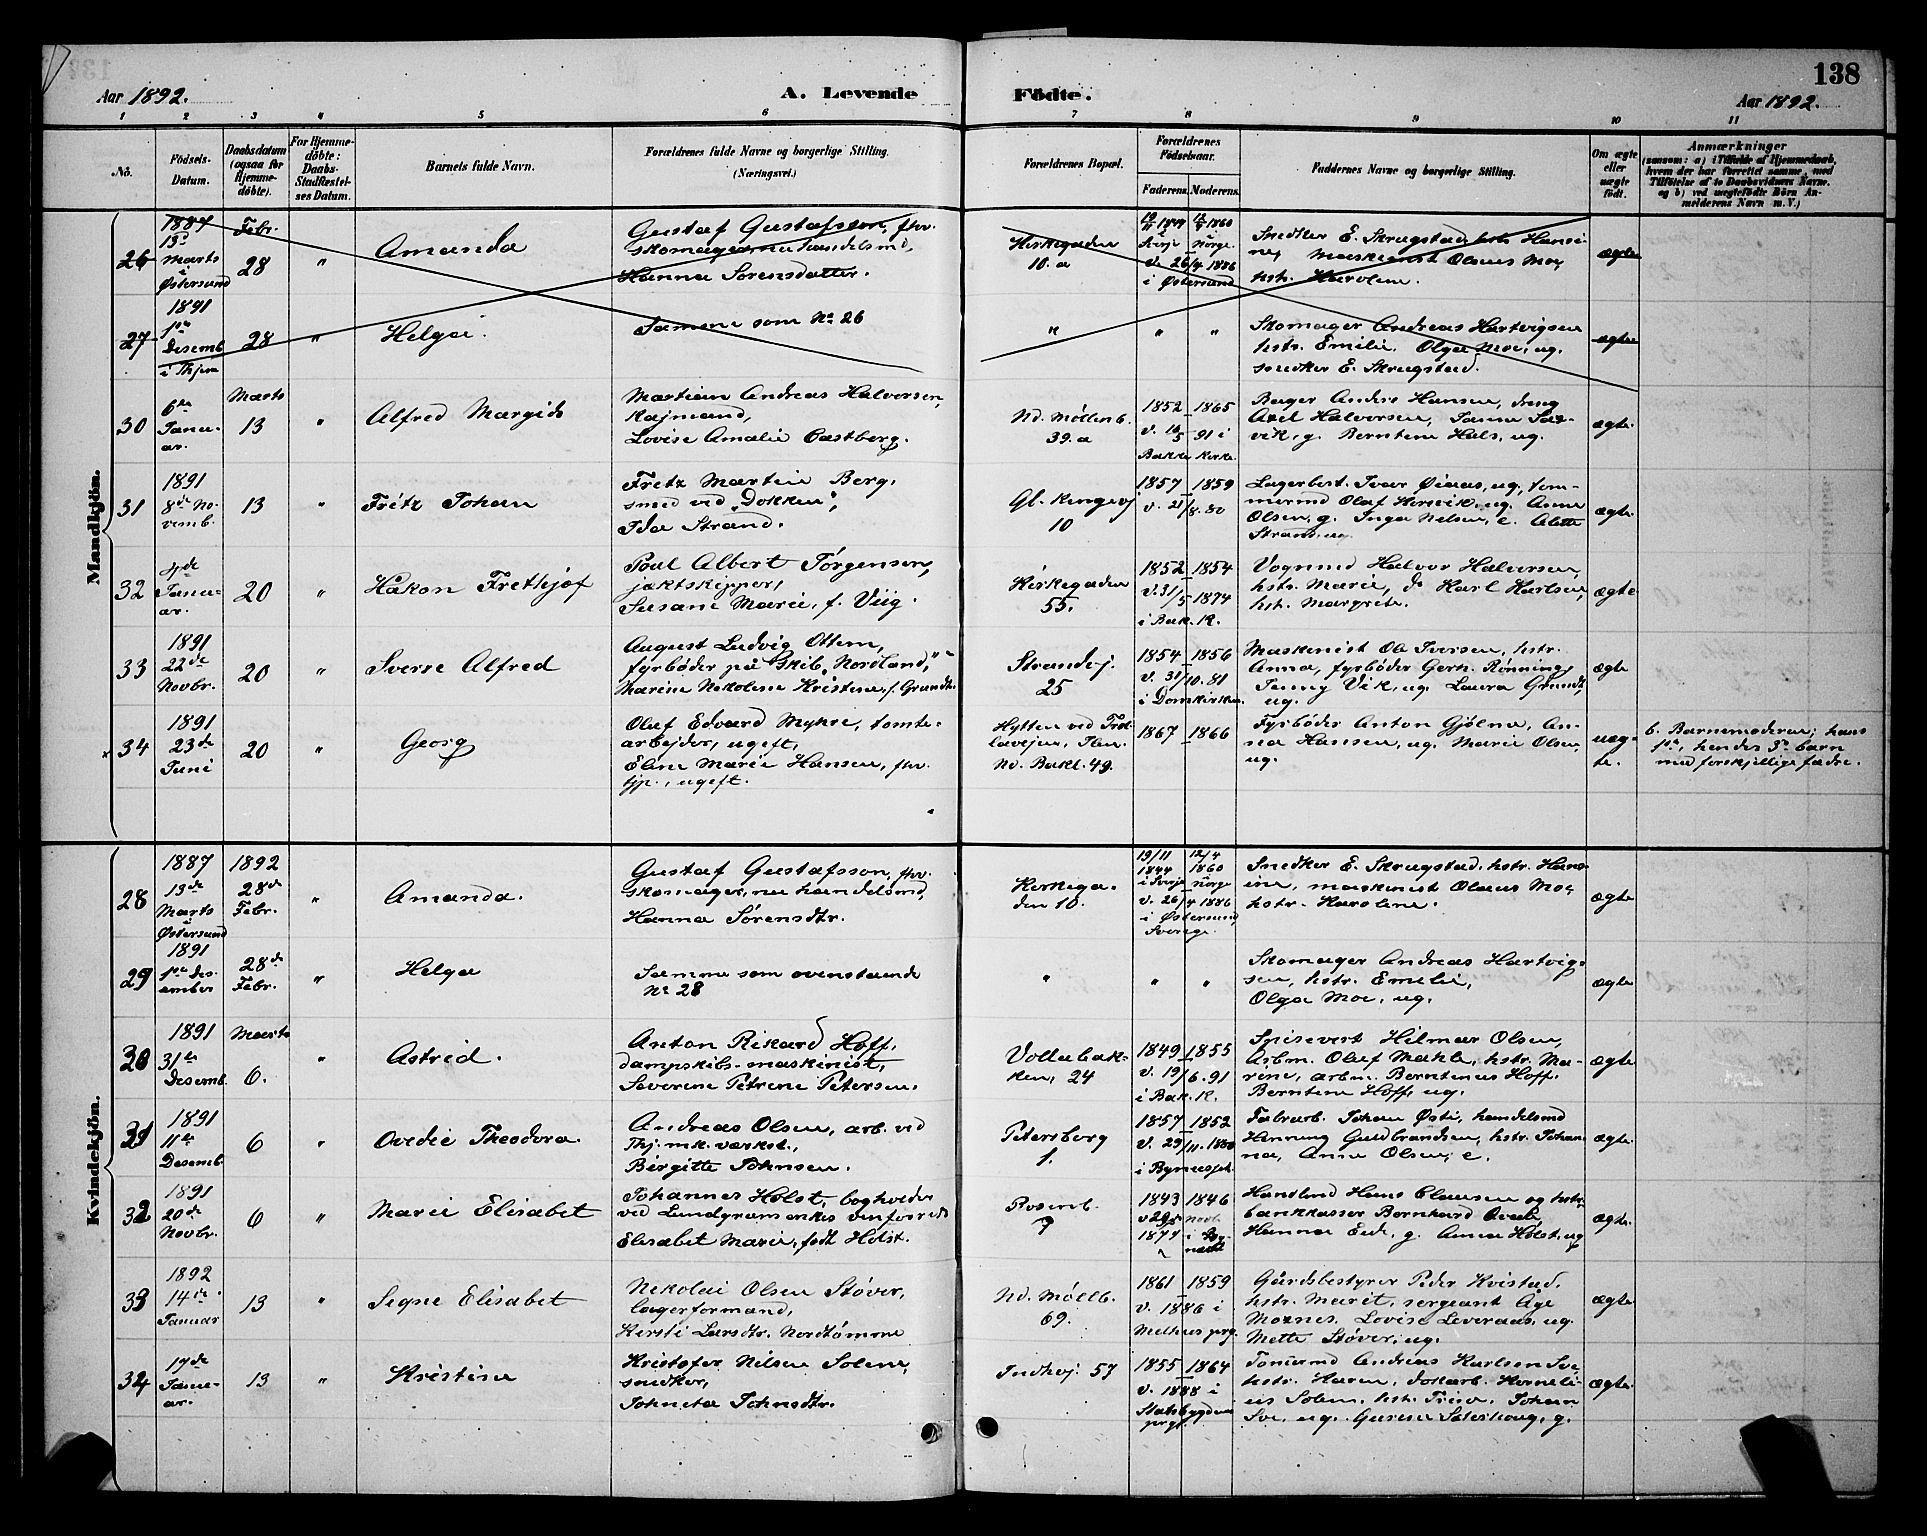 138
Aar 1892.
A. Levende Födte.
Aar 1892.
1 2 3 4 5 6 7 8 9 10 11
No.
Födsels-
Datum.
Daabsdatum
(ogsaa for
Hjemme-
döbte).
For Hjemme-
döbte:
Daabs-
Stadfæstel-
ses Datum.
Barnets fulde Navn.
Forældrenes fulde Navne og borgerlige Stilling.
(Næringsvei.)
Forældrenes Bopæl.
Forældrenes
Födselsaar.
Faderens. Moderens.
Faddernes Navne og borgerlige Stilling.
Om ægte
eller
uægte
födt.
Anmærkninger
(saasom: a) i Tilfælde af Hjemmedaab,
hvem der har forrettet samme, med
Tilföielse af to Daabsvidners Navne.
og b) ved uægtefödte Börn An-
melderens Navn m. V.)
Mandkjön.
26
1887
13de
Marts
i
Østersund
Febr.
28
"
Amanda
Gustaf Gustafsson, fhv.
skomager nu handelsmd,
Hanna Sørensdatter.
Kirkegaden
10. a
19/11 1844 12/4 1860
i Sverje Norge
v. 26/4 1886
i Østersund
Snedker E. Skrugstad, hstr. Hansi-
ne, maskinist Olaus Moe,
hstr. Karoline.
ægte
27
1891
1ste
Desemb.
i Thjem
28
"
Helga.
Samme som No 26
" " "
Skomager Andreas Hartvigsen
hstr. Emilie. Olga Moe, ug.
snedker E. Skrugstad.
ægte
30
6te
Janu-
ar.
Marts
13
"
Alfred Margido
Martian Andreas Halvorsen,
Kajmand,
Lovise Amalie Castberg.
Nd. Møllenb.
39. a
1852 – 1865
v. 16/5 91 i
Bakke Kirke.
Bager Anders Hansen, dreng
Axel Halvorsen, Sanna Sax-
vik, g. Berntine Hals, ug.
ægte.
31
1891
8de No-
vemb.
13
"
Fritz Johan
Fritz Martin Berg,
smed ved "Dokken",
Ida Strand.
Gl. Kongevej
10
1857 – 1859
v. 21/8. 80
Lagerbest. Ivar Øiaas, ug, tøm-
mermd Olaf Hervik, ug. Anne
Olsen, g. Inga Nelsen, e. Alette
Strand, ug.
ægte.
32
4de
Janu-
ar.
20
"
Håkon Frethjof
Poul Albert Jørgensen,
jaktskipper,
Susane Marie, f. Viig.
Kirkegaden
55.
1852 – 1854
v. 31/5 1874
i Bak. K.
Vognmd Halvor Halvorsen,
hstr. Marie, do Karl Karlsen,
hst. Margrete.
ægte
33
1891
22de
Novbr.
20
"
Sverre Alfred
August Ludvig Ottem,
fyrbøder på Skib "Nordland",
Marine Nekoline Kristine, f. Grundt.
Strandvj.
25
1854 – 1856
v. 31/10. 81
i Domkirken.
Maskinist Ole Iversen, hstr.
Anna, fyrbøder Gerh. Rønning,
Jenny Vik, ug. Laura Grundt,
ug.
ægte
34
1891
23de
Juni
20
"
Georg
Olaf Edvard Myhre, tomte-
arbejder, ugeft,
Eline Marie Hansen, fhv.
tjp., ugeft.
Hytten ved Trol-
lavejen, Ilen.
Nd. Bakl. 49.
1867 – 1866
Fyrbøder Anton Gjølme, An-
na Hansen, ug. Marie Olsen,
ug.
uæg-
te.
b. Barnemoderen; hans
1ste, hendes 3de barn
med forskjellige fædre.
Kvindekjön.
28
1887
13de
Marts
Østersund
1892
28de
Febr.
"
Amanda.
Gustaf Gustafsson, fhv.
skomager, nu handelsmd,
Hanna Sørensdtr.
Kirkega-
den 10.
19/11 12/4
1844 1860
i Sverje Norge
v. 26/4 1886
i Østersund,
Sverige.
Snedker E. Skrugstad, hstr. Hans-
ine, maskinist Olaus Moe,
hstr. Karoline.
ægte
29
1891
1ste Des-
ember
28de
Febr.
"
Helga
Samme som ovenstaaende
No 28
" " "
Skomager Andreas Hartvig-
sen, hstr. Emilie,
Olga Moe, ug.
ægte
30
1891
31te
Desemb.
Marts
6.
"
Astrid.
Anton Rikard Hoff,
dampskibs-maskinist,
Severine Petrine Petersen.
Vollabak-
ken, 24
1849 – 1855
v. 19/6. 91
i Bak. K.
Snisevert Hilmar Olsen,
Arbm. Olaf Makle, hstr. Ma-
rine, arbm. Berntinus Hoff,
Berntine Hoff, ug.
ægte
31
1891
11te
Desemb.
6
"
Ovedie Theodora.
Andreas Olsen, arb. ved
Thj. mk. værkst.,
Birgitte Johnsen.
Petersborg
1.
1857 – 1852
v. 29/11. 1880
i Bynesset.
Fabrarb. Johan Østi, handelsmd
Henning Guldbrandsen, hstr. Johan-
na, Anna Olsen, e.
ægte.
32
1891
20de
Novbr.
6
"
Marie Elisabet
Johannes Holst, boghvolder
ved Lundgrens enkes vinforretn.
Elisabet Marie, født Holst.
Rosenb.
7
1843 – 1846
1874
Handlmd Hans Clausen og hstr,
bankkasser Bernhard Qvale,
Hanna Eide, g. Anna Holst, ug
ægte.
33
1892
14de
Januar
13
"
Signe Elisabet
Nekolai Olsen Støver,
lagerformand,
Kirsti Larsdtr. Nordtømme
Nd. Møllb.
69.
1861 – 1859
v. 1886 i
Melhus prg.
Gårdsbestyrer Peder Kvistad,
hstr. Marit, sergeant Åge
Moxnes, Lovise Leveraas, ug.
Mette Støver, ug.
ægte
34
19de
Janu-
ar.
13
"
Kristine
Kristofer Nilsen Solem,
snedker,
Johneta Johnsdtr.
Indhvj. 57
1855 – 1864
v. 1888 i
Stadsbygdens
prg.
Tømmermd Andreas Karlsen Sve,
hstr. Karen, dokarb. Korneli-
us Solem, hst. Trine. Johan
Sve, ug. Gurine Saterhaug, g.
ægte.